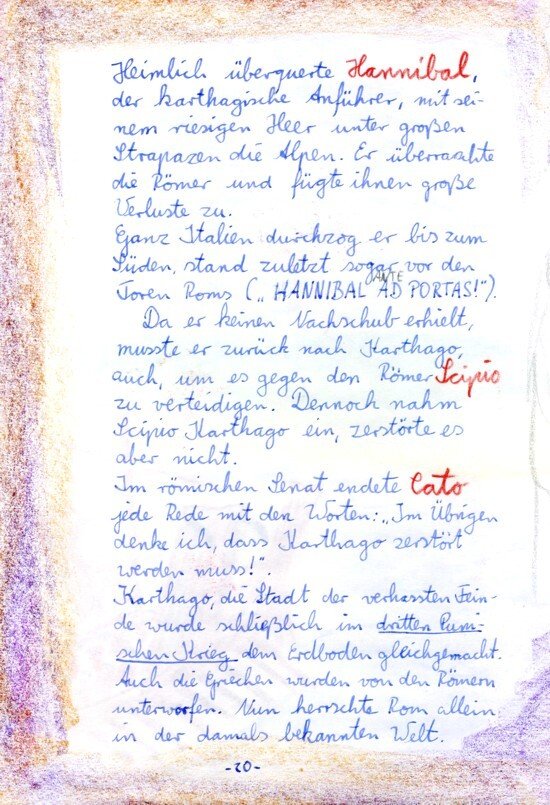 Heimlich überquerte Hannibal,
der karthagische Anführer, mit sei-
nem riesigen Heer unter großen
Strapazen die Alpen. Er überraschte
die Römer und fügte ihnen große
Verluste zu.
Ganz Italien durchzog er bis zum
Süden, stand zuletzt sogar vor den
ANTE
Toren Roms („HANNIBAL AD PORTAS!").
Da er keinen Nachschub erhielt,
musste er zurück nach Karthago,
auch, um es gegen den Römer Scipio
zu verteidigen. Dennoch nahm
Scipio Karthago ein, zerstörte es
aber nicht.
Im römischen Senat endete Cato
jede Rede mit den Worten: „Im Übrigen
denke ich, dass Karthago zerstört
werden muss!".
Karthago, die Stadt der verhassten Fein-
de wurde schließlich im dritten Puni-
schen Krieg dem Erdboden gleichgemacht.
Auch die Griechen wurden von den Römern
unterworfen. Nun herrschte Rom allein
in der damals bekannten Welt.
-20-